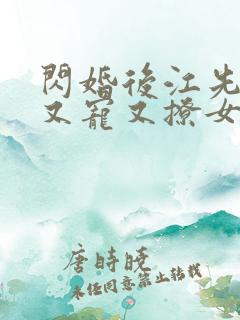 閃婚後江先
又寵又撩女
唐時晚
未任同意禁止转载